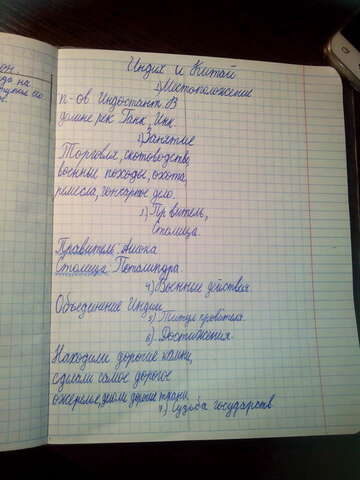 Индия и Китай
1) Местоположение
п-ов Индостант. В
долине рек Ганк, Инк.
2) Занятие
Торговля, скотоводство,
военные походы, охота,
ремесла, гончарное дело.
3) Пр витель,
Столица.
Правитель Ашока
Столица Поталипдра.
4) Военные действия.
Объединение Индии
5) Титул правителя.
6) Достижения.
Находили дорогие камни,
сделали самое дорогое
ожерелье, дорогие ткани.
7) Судьба государств.
он
да на